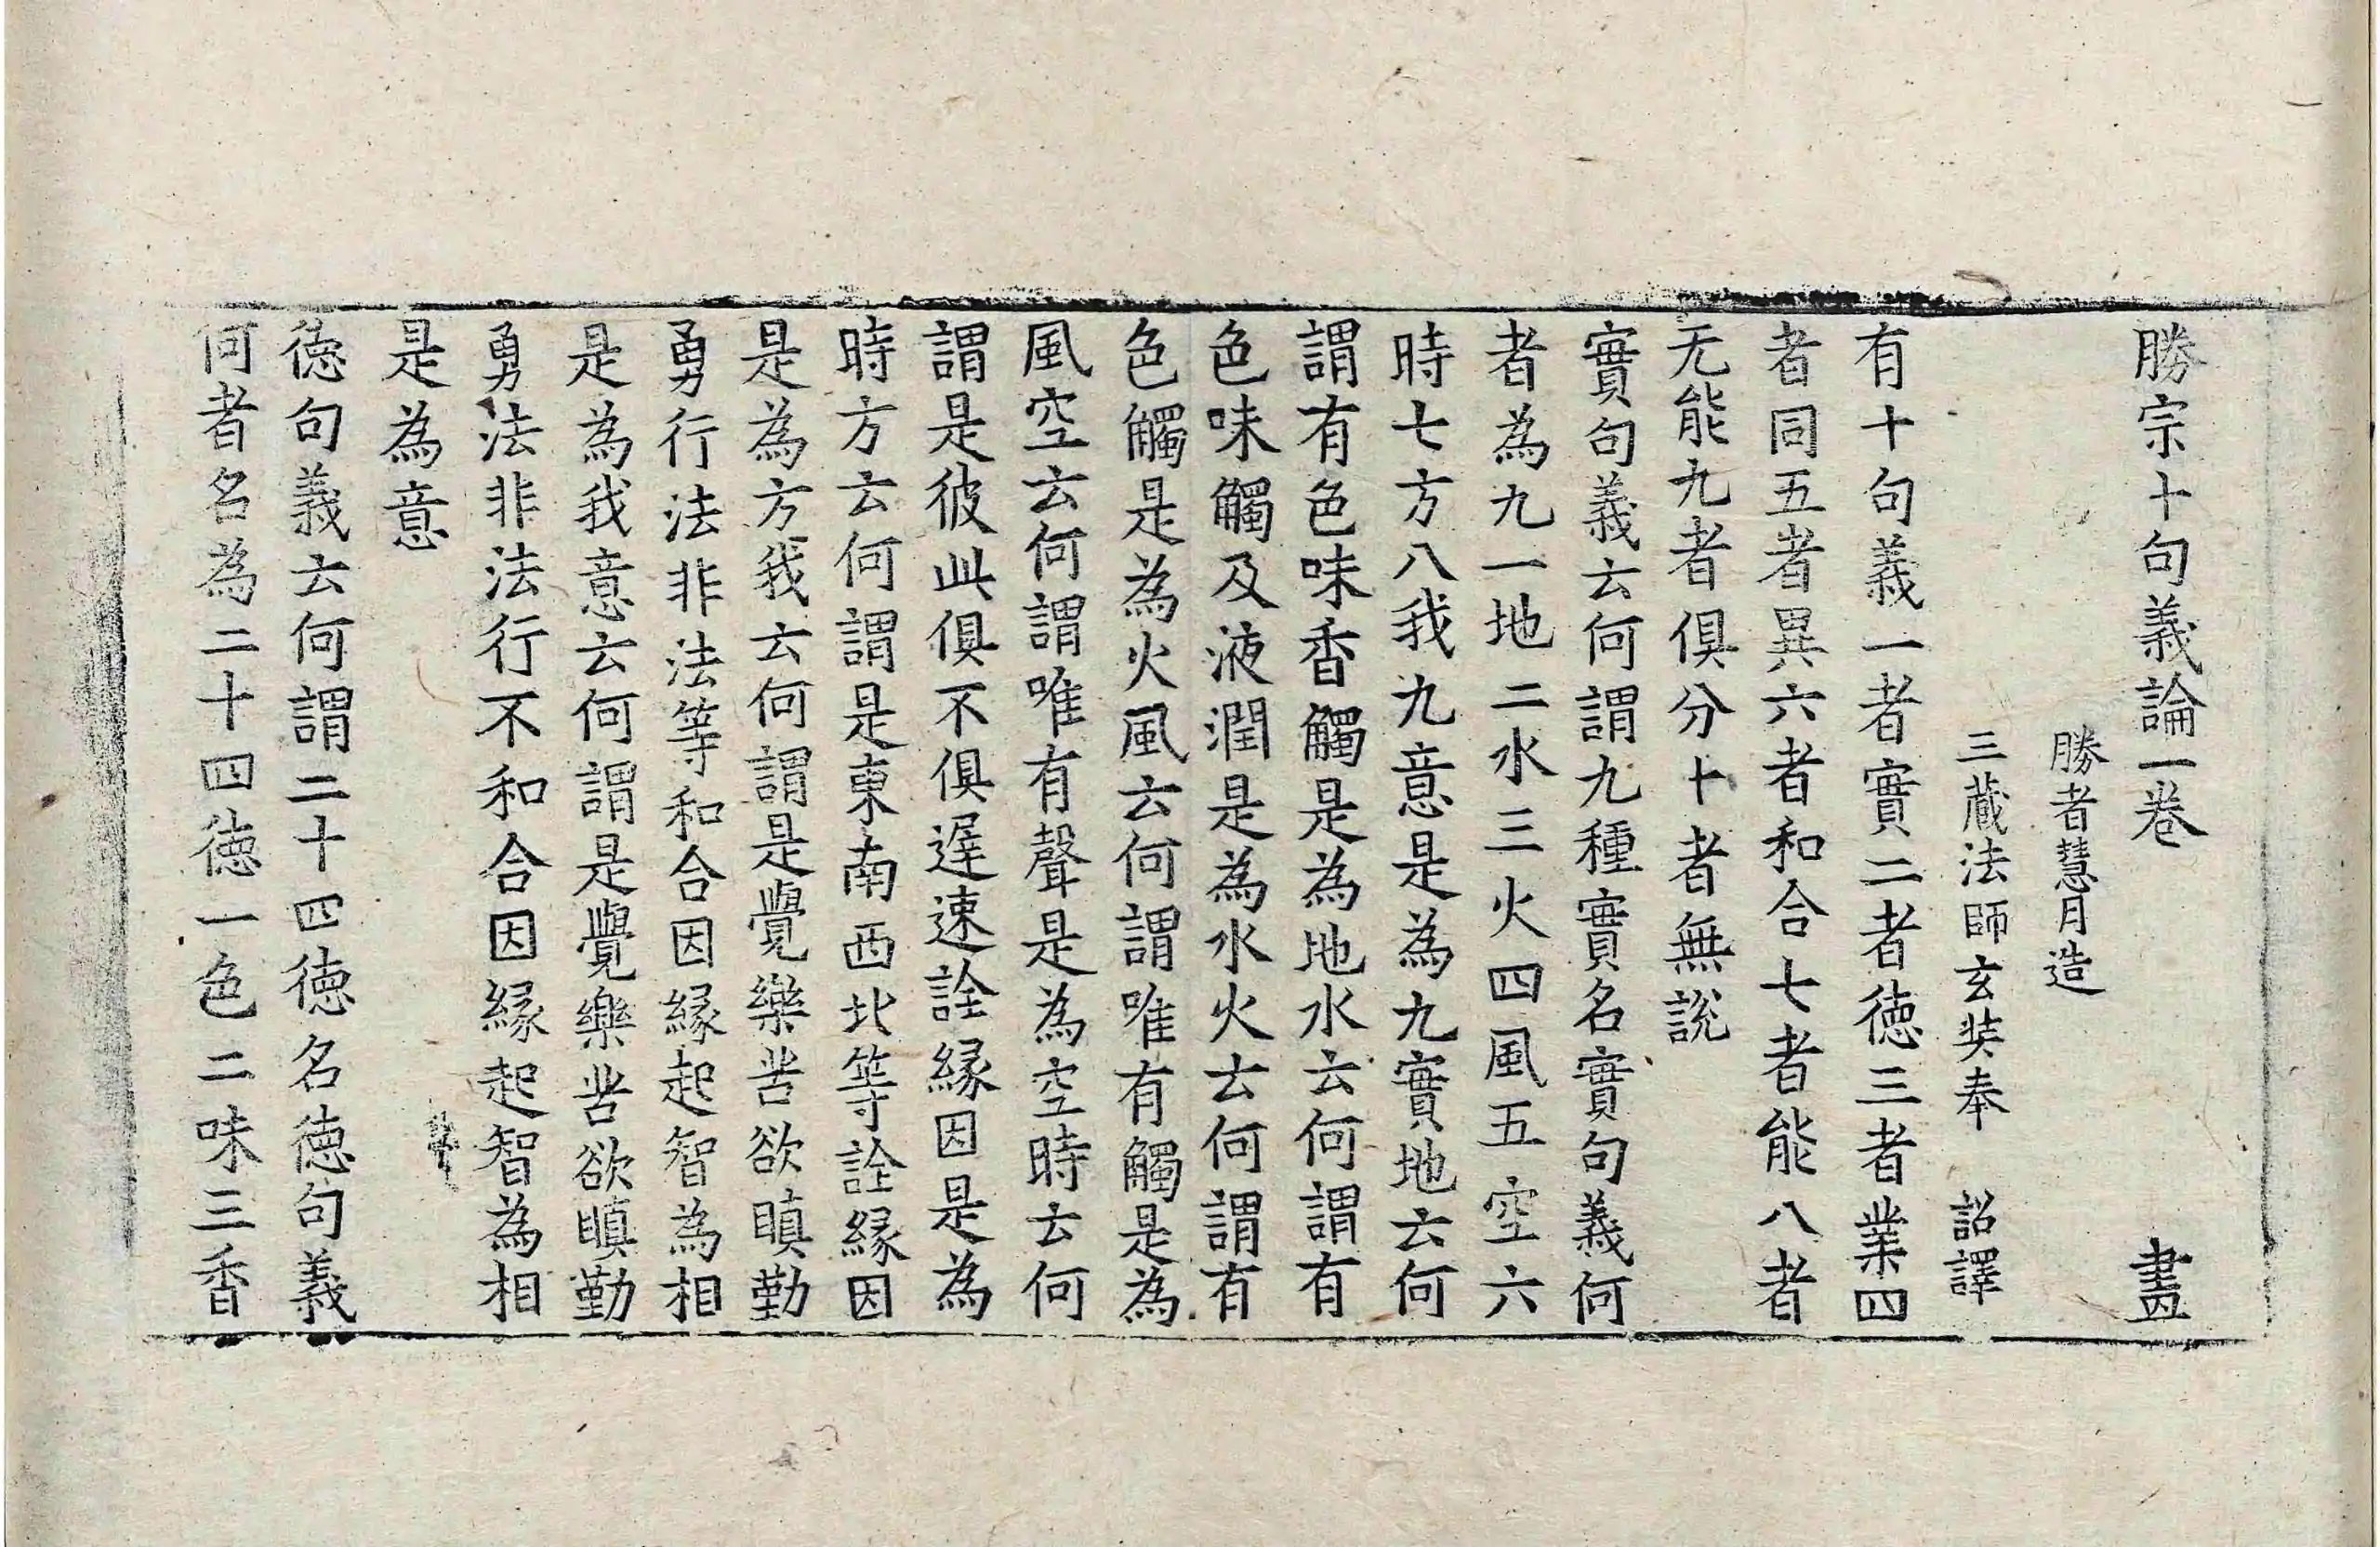 勝宗十句義論一卷　　畫
勝者慧月造
三藏法師玄奘奉　詔譯
有十句義一者實二者徳三者業四
者同五者異六者和合七者能八者
无能九者俱分十者無說
實句義云何謂九種實名實句義何
者為九一地二水三火四風五空六
時七方八我九意是為九實地云何
謂有色味香觸是為地水云何謂有
色味觸及液潤是為水火云何謂有
色觸是為火風云何謂唯有觸是為
風空云何謂唯有聲是為空時云何
謂是彼此俱不俱遲速詮緣因是為
時方云何謂是東南西北等詮緣因
是為方我云何謂是覺樂苦欲瞋勤
勇行法非法等和合因緣起智為相
是為我意云何謂是覺樂苦欲瞋勤
勇法非法行不和合因緣起智為相
是為意
徳句義云何謂二十四徳名徳句義
何者名為二十四徳一色二味三香